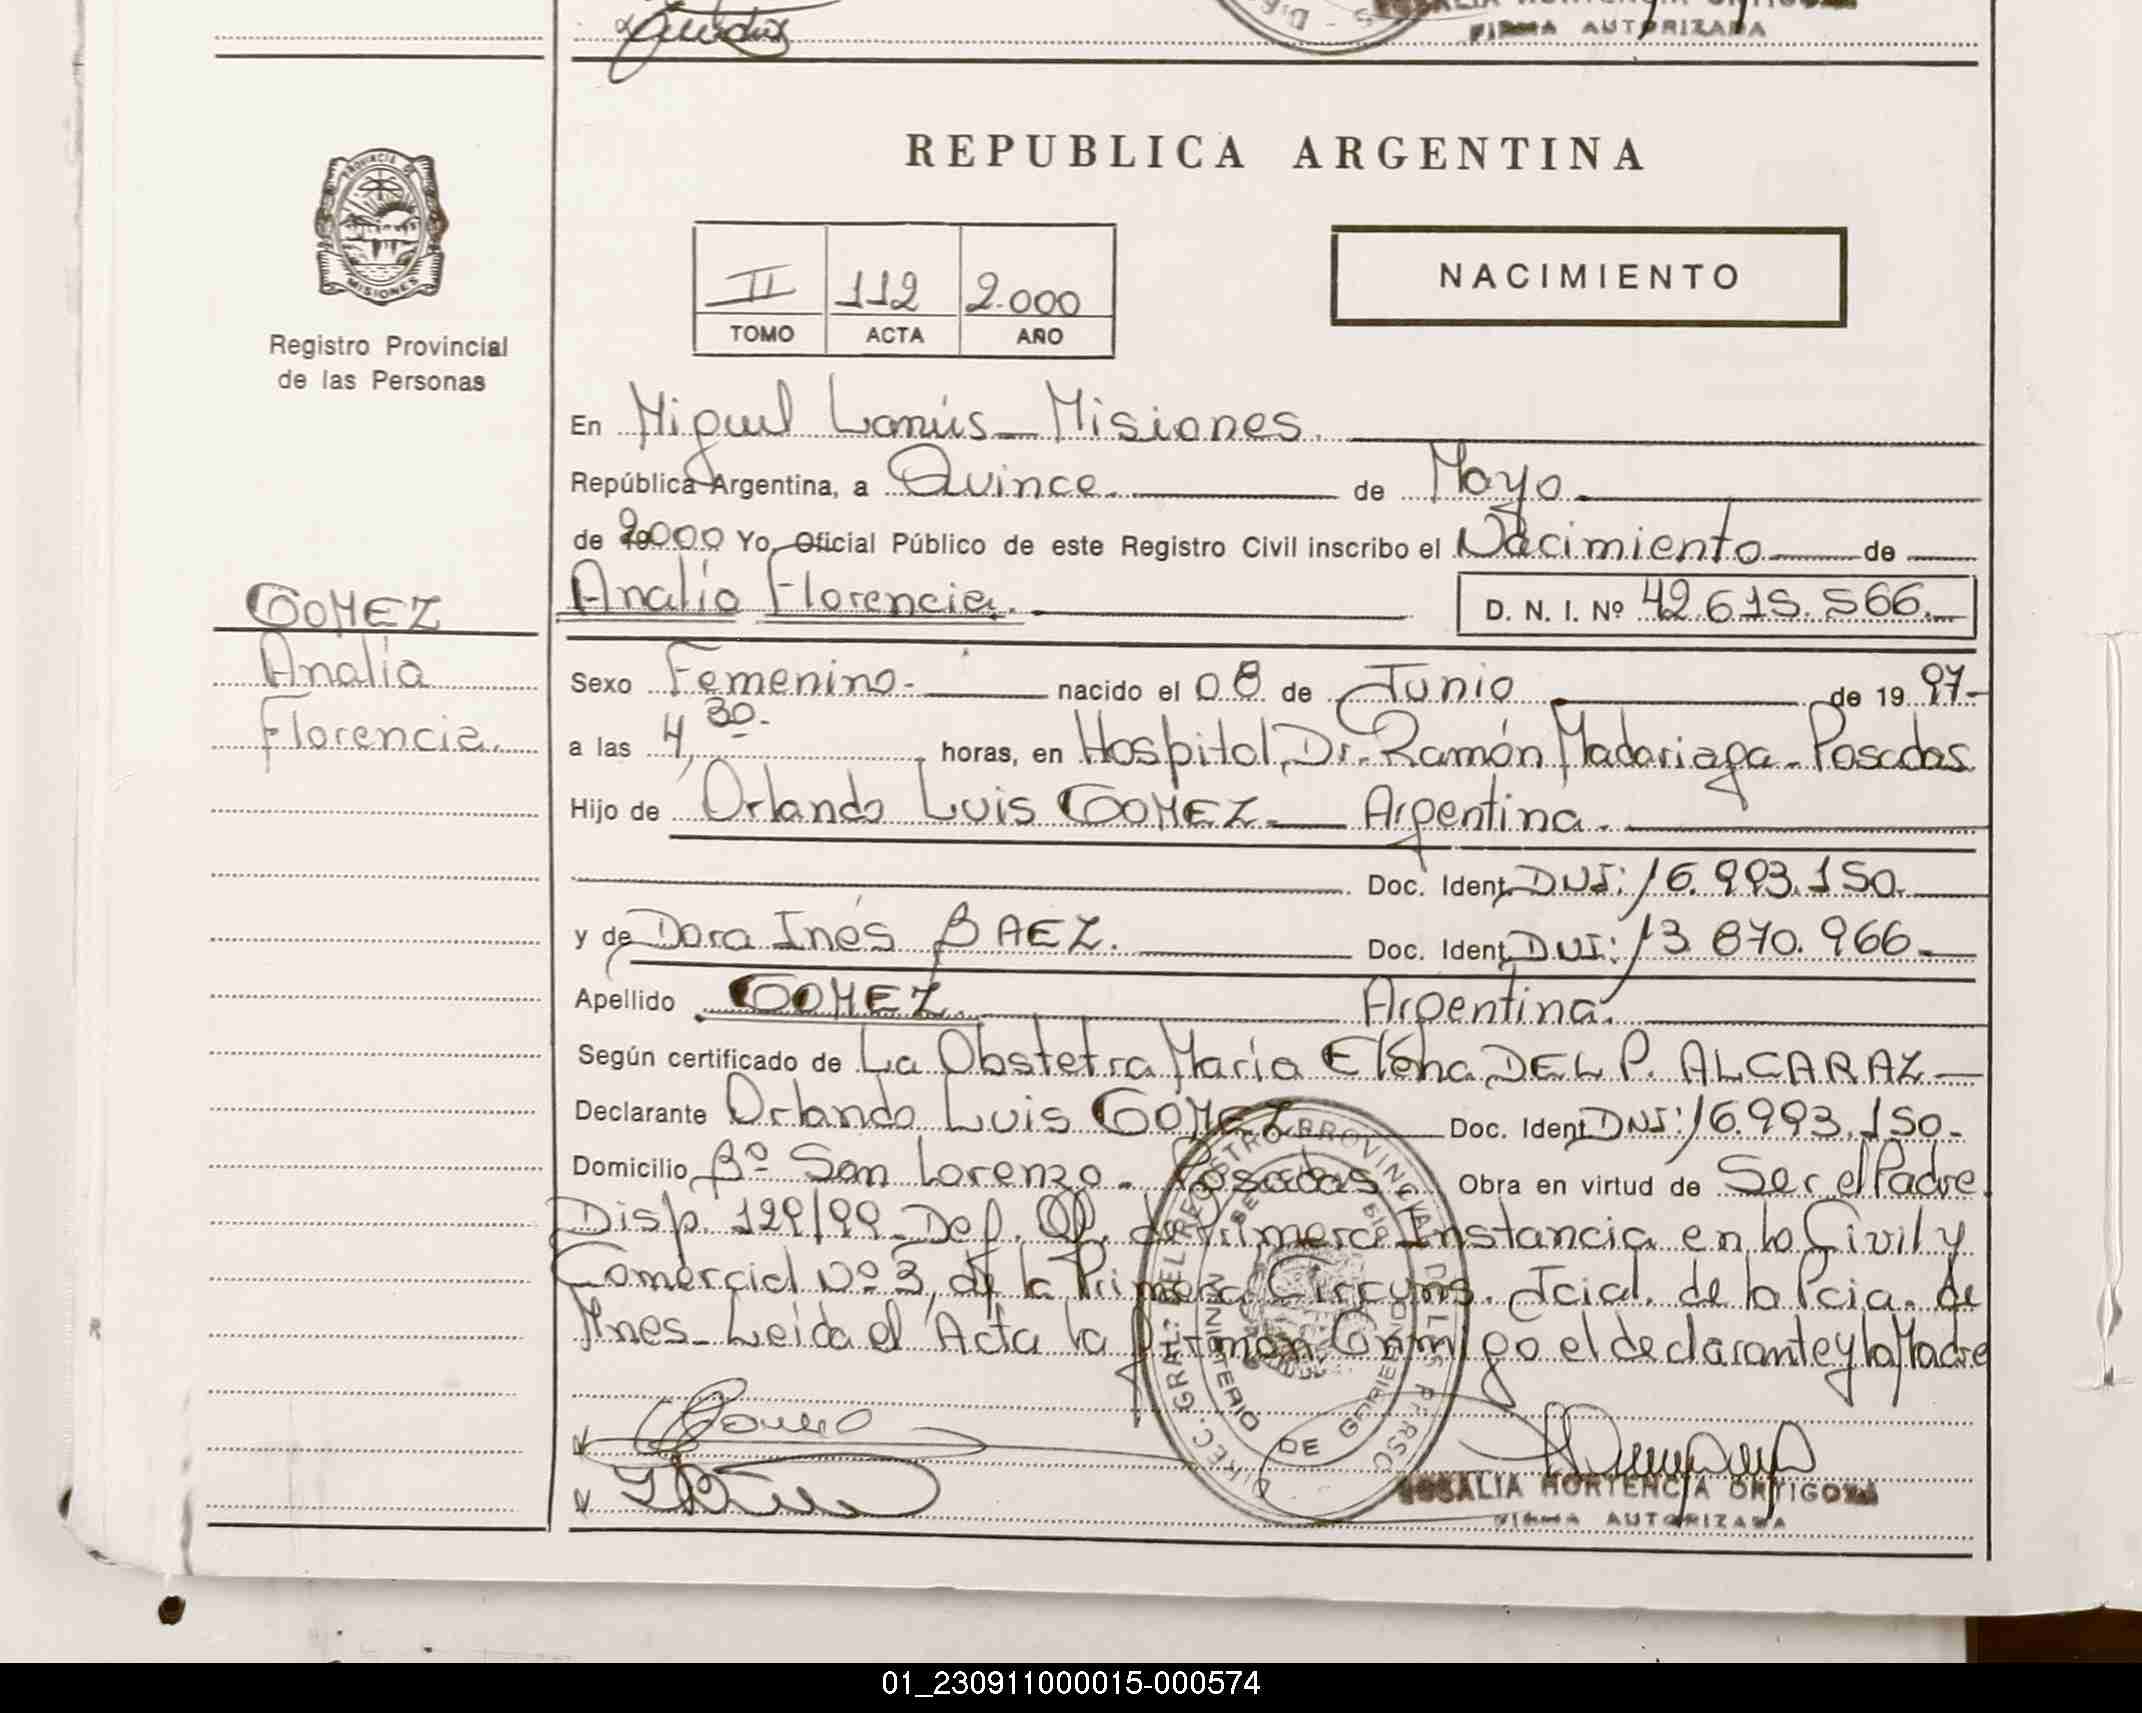 FIRMA AUTORIZADA
REPUBLICA ARGENTINA
PROVINCIA DE
MISIONES
Registro Provincial
de las Personas
II 112 2.000
TOMO ACTA AÑO
NACIMIENTO
En Miguel Lanús - Misiones.
República Argentina, a Quince. de Mayo.
de 2000 Yo, Oficial Público de este Registro Civil inscribo el Nacimiento de
Analía Florencia. D. N. I. Nº 42.615.566.
GOMEZ
Analía
Florencia.
Sexo Femenino. nacido el 08 de Junio de 19 97-
a las 4,30. horas, en Hospital Dr. Ramón Madariaga - Posadas
Hijo de Orlando Luis GOMEZ - Argentina.
Doc. Ident. DNI: 16.993.150.
y de Dora Inés BAEZ. Doc. Ident. DNI: 13.870.966.
Apellido GOMEZ. Argentina.
Según certificado de La Obstetra María Elena DEL P. ALCARAZ
Declarante Orlando Luis GOMEZ Doc. Ident. DNI: 16.993.150.
Domicilio Bº San Lorenzo - Posadas. Obra en virtud de Ser el Padre.
Disp. 129/99 Def. Of. de Primera Instancia en lo Civil y
Comercial Nº 3, de la Primera Circuns. Jcial. de la Pcia. de
Mnes - Leída el Acta la firman Conmigo el declarante y la Madre
DIREC. GRAL. DEL REGISTRO PROVINCIAL DE LAS PERSONAS
MINISTERIO DE GOBIERNO
ROSALIA HORTENCIA ORTIGOZA
FIRMA AUTORIZADA
01_230911000015-000574